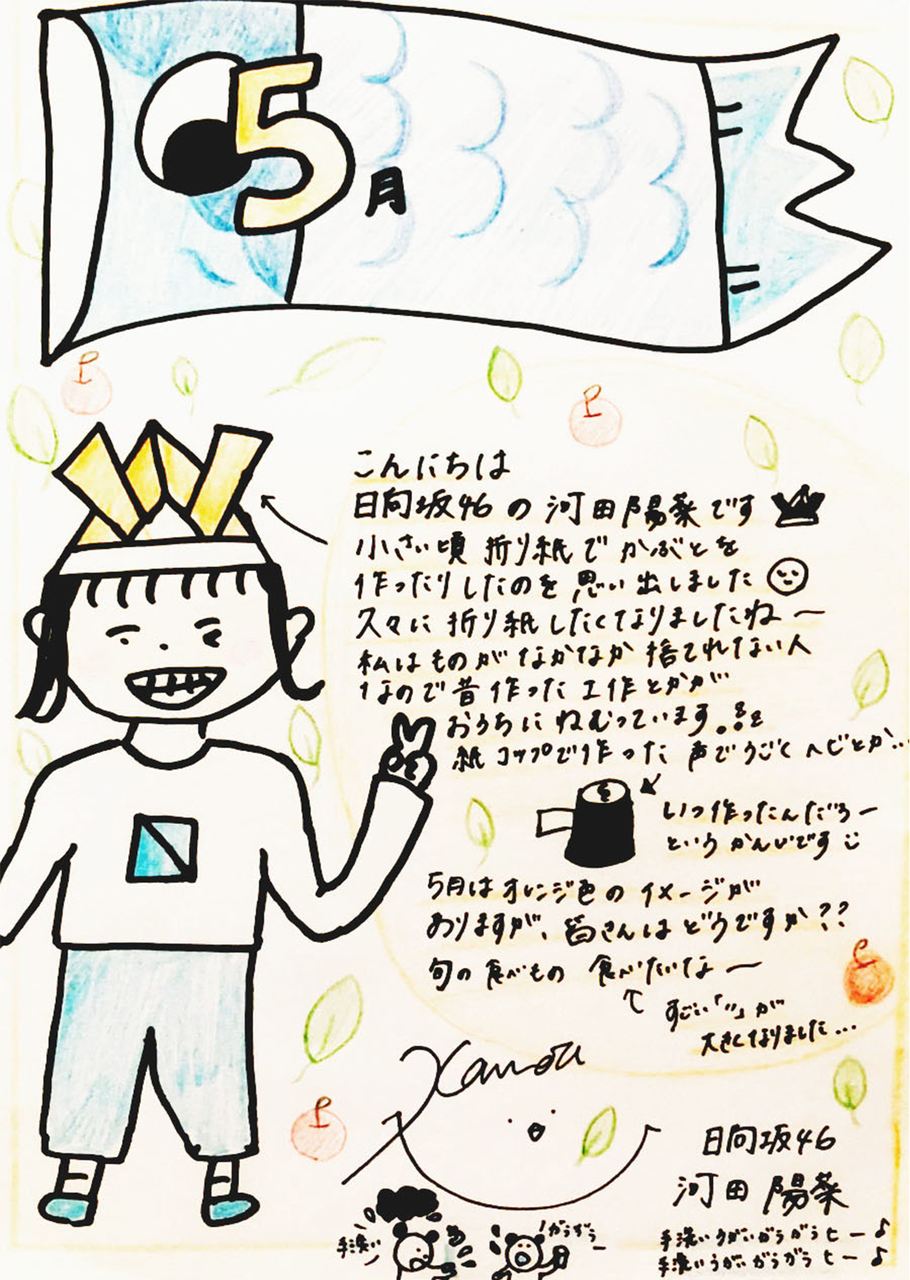 5月
こんにちは
日向坂46の河田陽菜です
小さい頃折り紙でかぶとを
作ったりしたのを思い出しました
久々に折り紙したくなりましたね〜
私はものがなかなか捨てれない人
なので昔作った工作とかが
おうちにねむっています。
紙コップで作った声でうごくヘビとか...
いつ作ったんだろー
というかんじです
5月はオレンジ色のイメージが
ありますが、皆さんはどうですか??
旬の食べもの食べたいなー
すごい「〃」が
大きくなりました...
Kawada
日向坂46
河田陽菜
手洗い
がらがらー
手洗いうがいがらがらヒー♪
手洗いうがいがらがらヒー♪